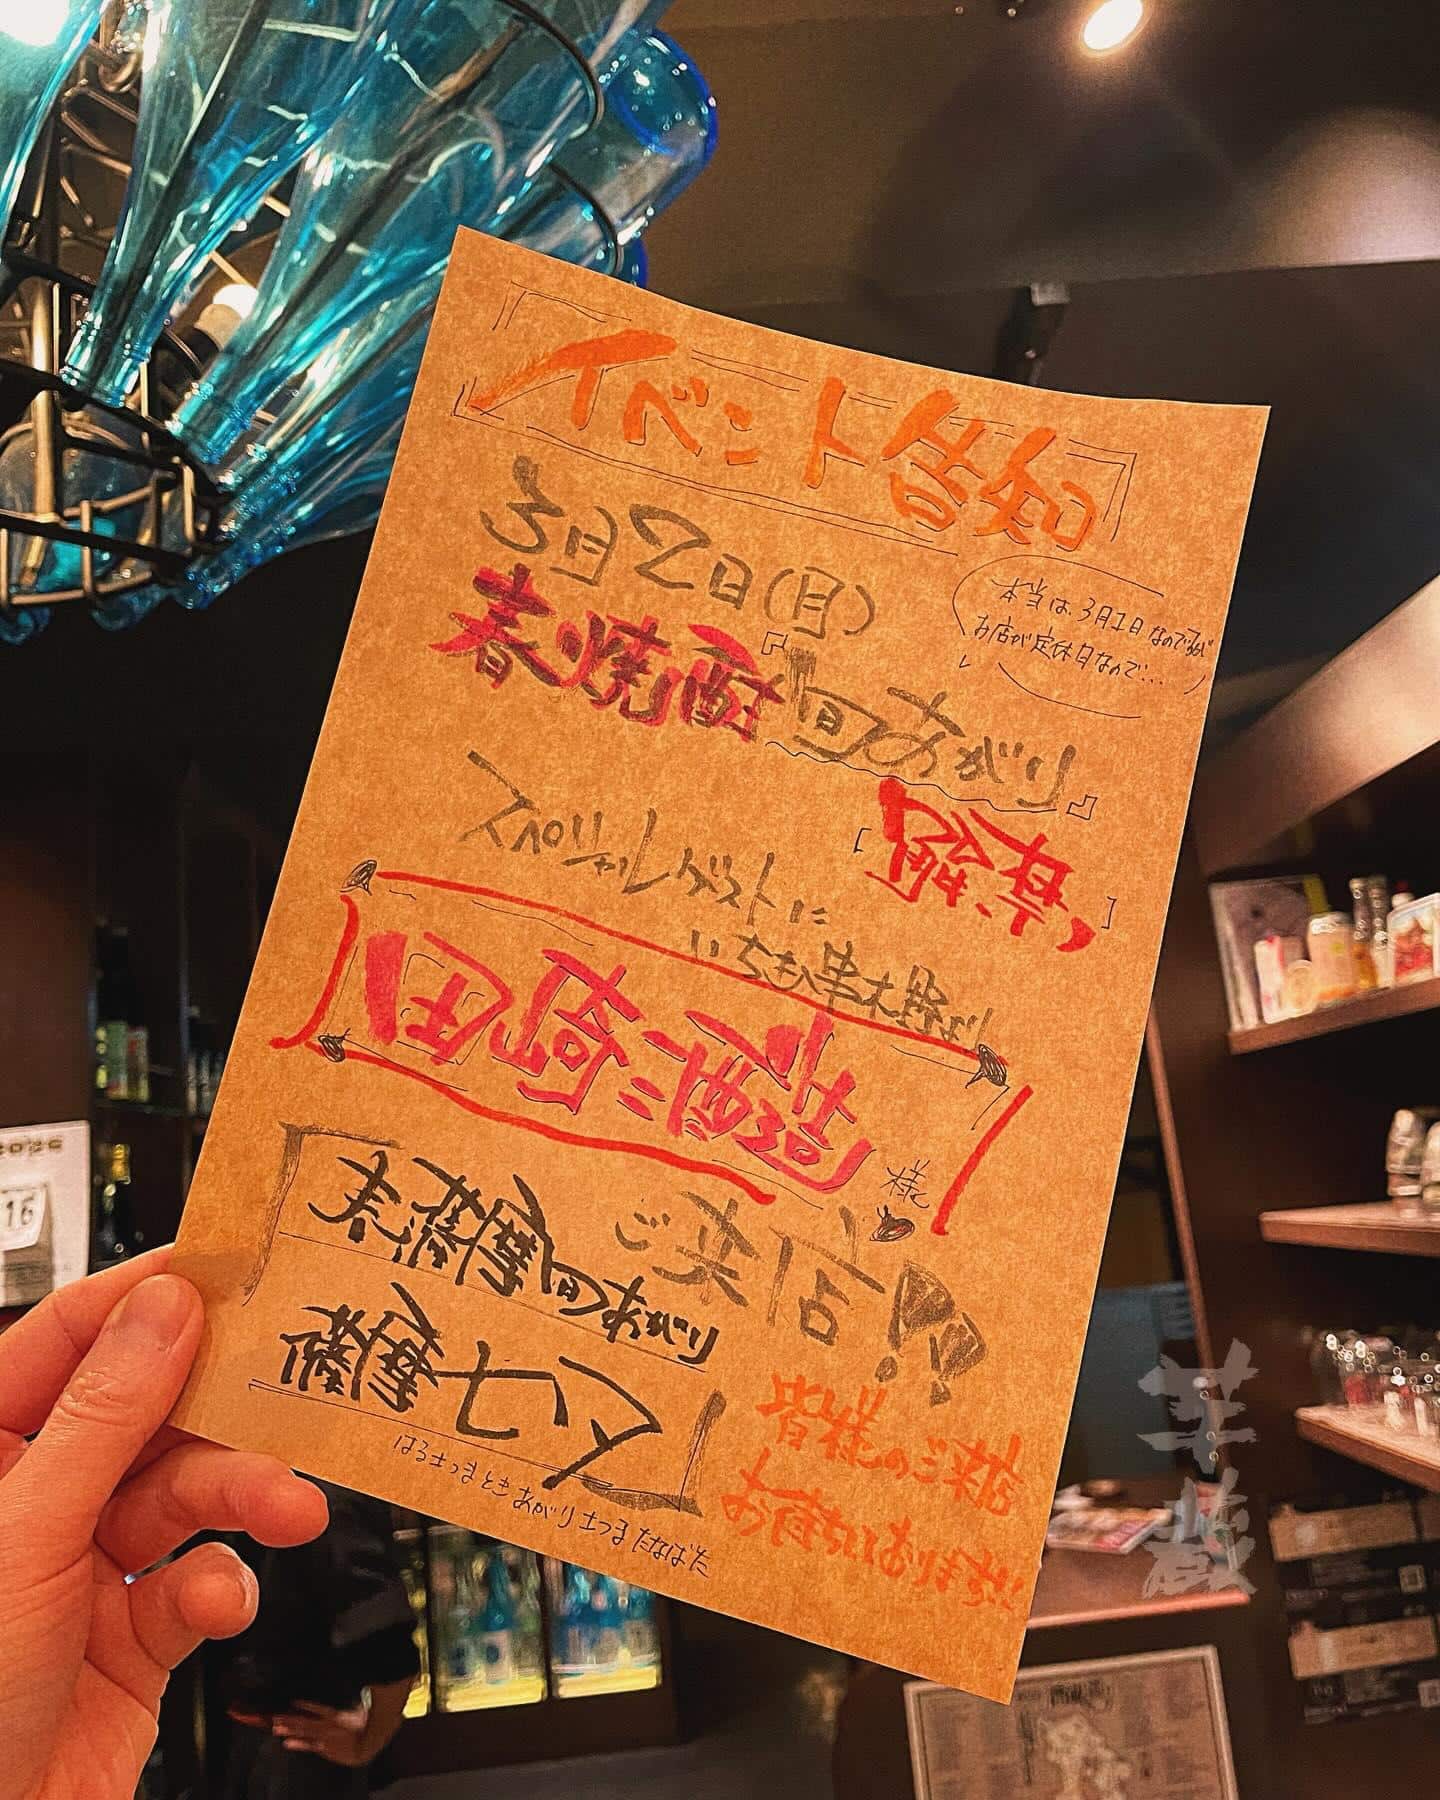 イベント告知
3月2日(月)
本当は、3月1日なのですが
お店が定休日なので...
春焼酎『旬あがり』
解禁
スペシャルゲストに
いちき串木野より
田崎酒造
様
ご来店!!
春薩摩旬あがり
薩摩七夕
はるさつまときあがりさつまたなばた
皆様のご来店
お待ちしております!!
16
芋蔵